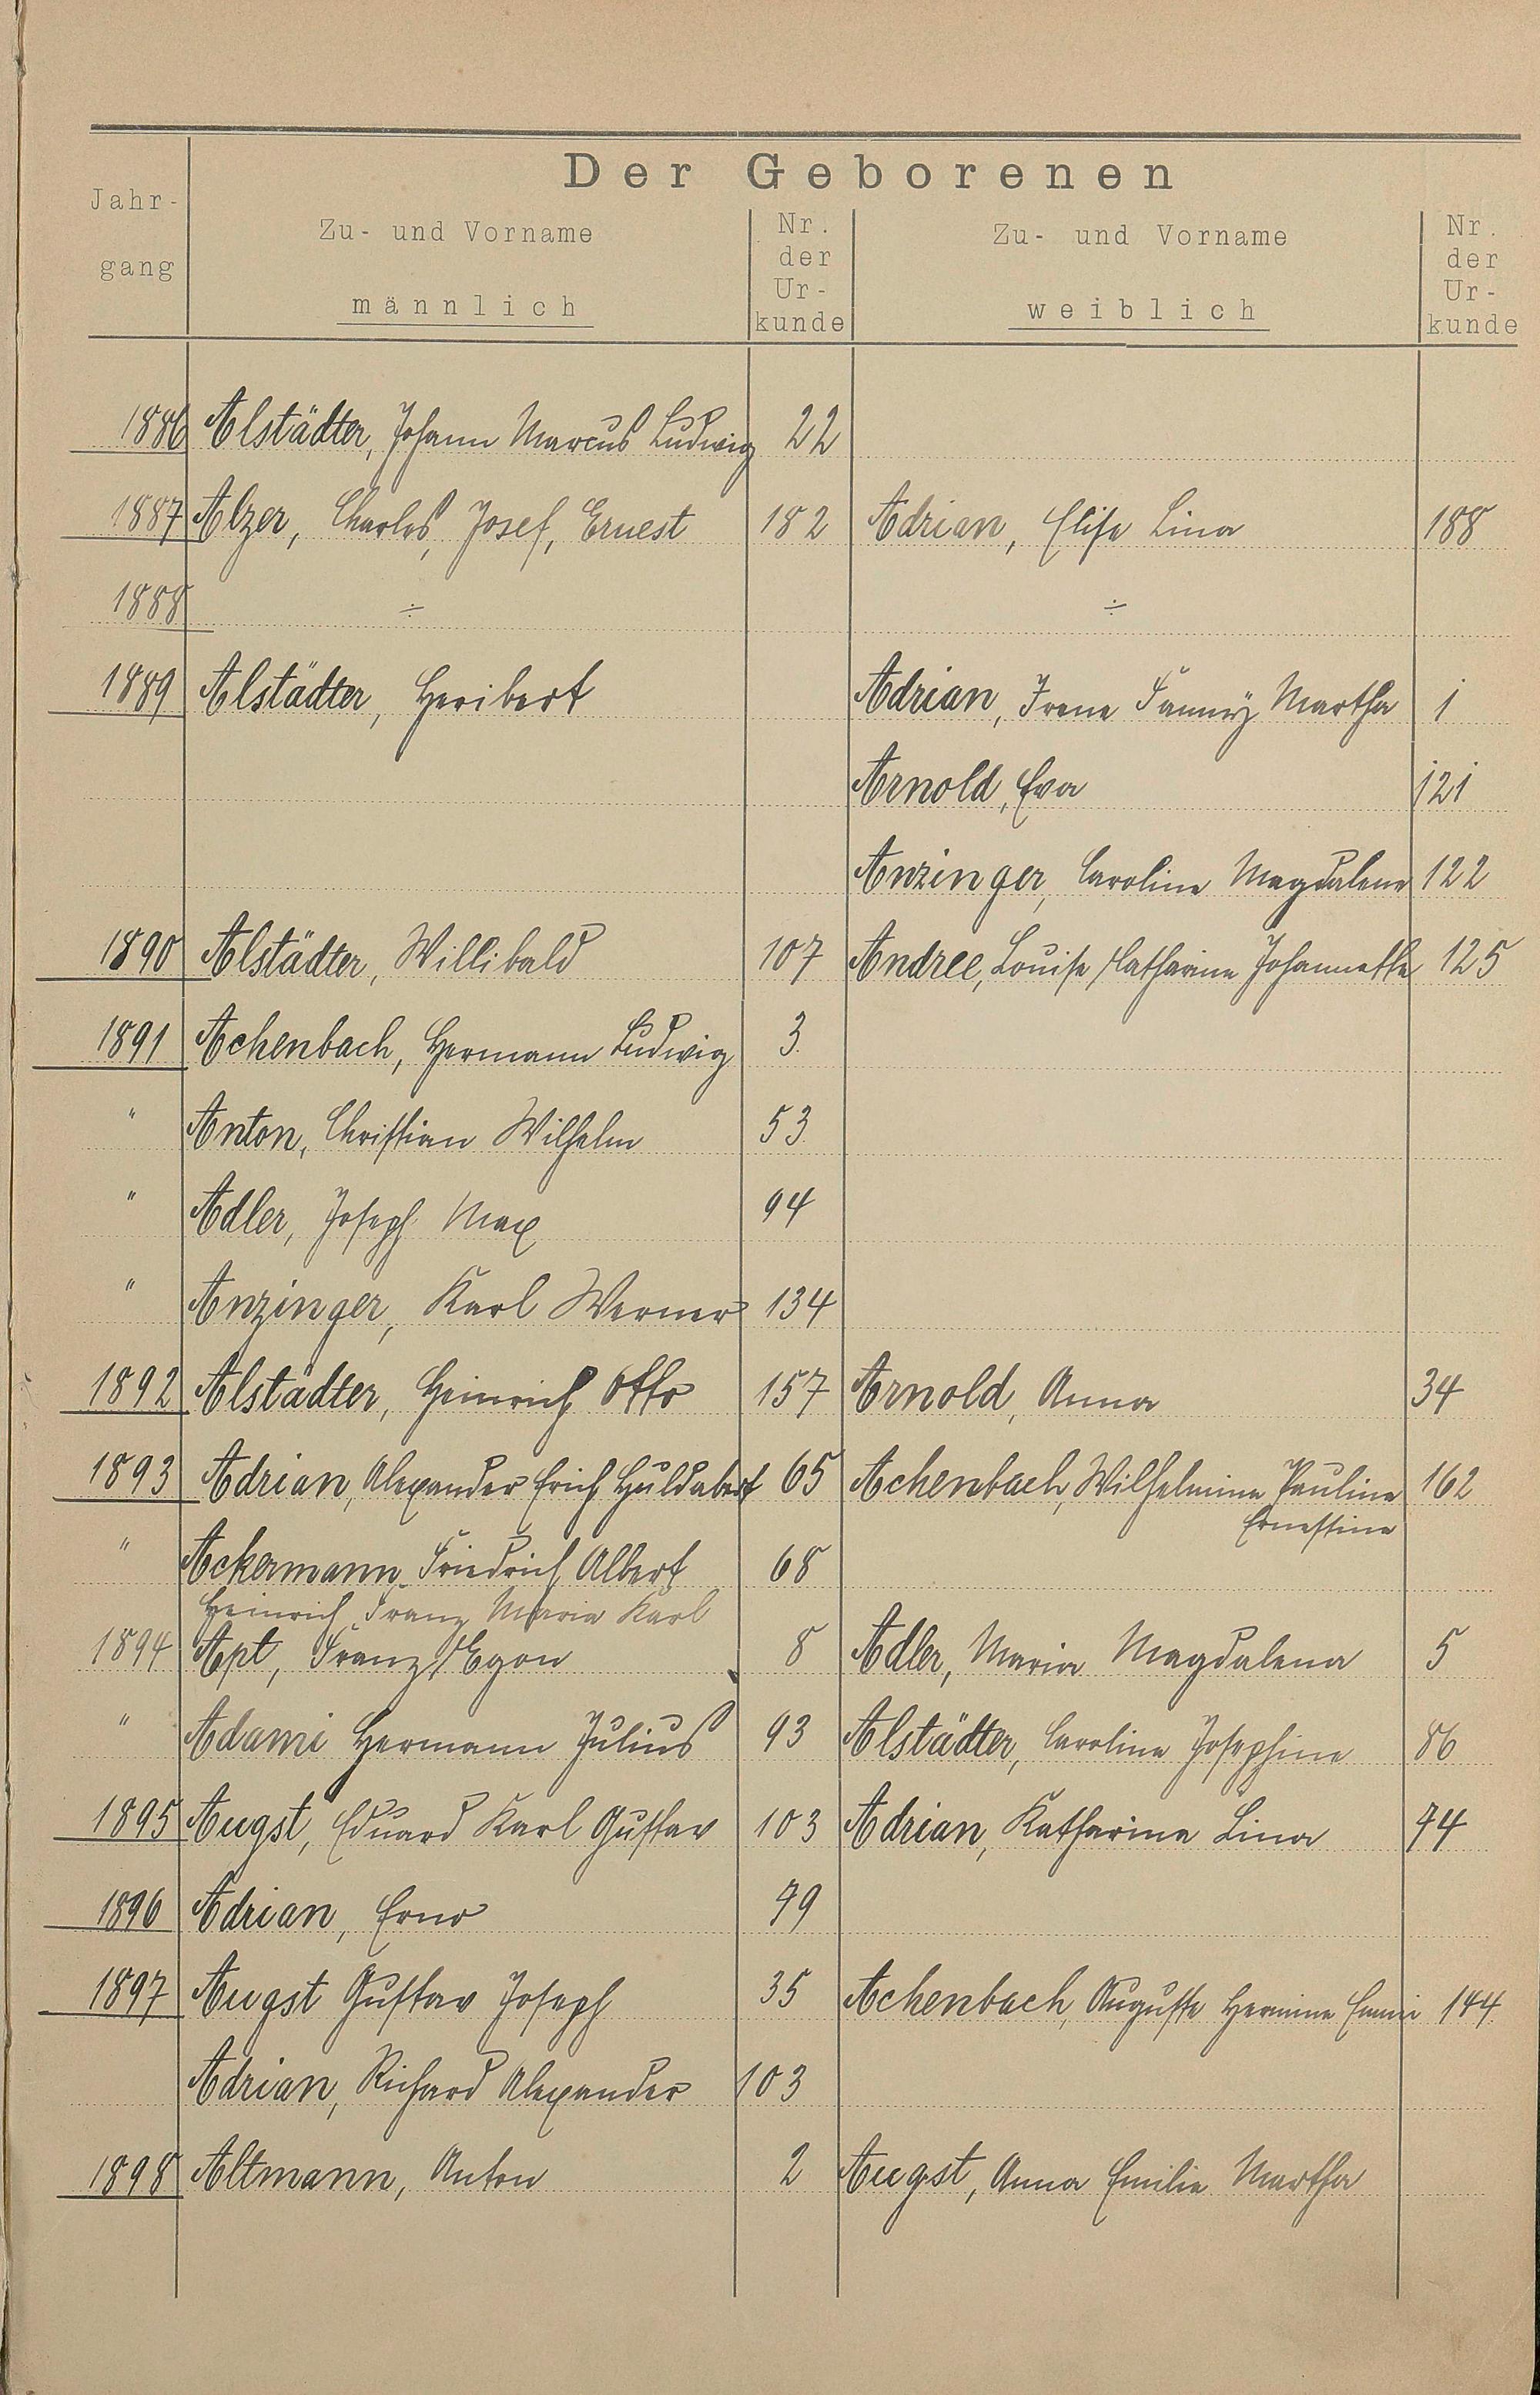 Der Geborenen
Jahr-gang
Zu- und Vorname männlich
Nr. der Ur-kunde
Zu- und Vorname weiblich
Nr. der Ur-kunde
1886 Alstädter, Johann Marcus Ludwig 22
1887 Alzer, Charles, Josef, Ernest 182 Adrian, Elise Lina 188
1888 ÷ ÷
1889 Alstädter, Heribert Adrian, Irene Fanny Martha 1
Arnold, Eva 121
Anzinger, Caroline Magdalene 122
1890 Alstädter, Willibald 107 Andree, Louise Catharine Johannette 125
1891 Achenbach, Hermann Ludwig 3
" Anton, Christian Wilhelm 53
" Adler, Joseph Max 94
" Anzinger, Karl Werner 134
1892 Alstädter, Heinrich Otto 157 Arnold, Anna 34
1893 Adrian, Alexander Erich Huldabert 65 Achenbach, Wilhelmine Pauline 162
Ernestine
" Ackermann, Friedrich Albert 68
Heinrich Franz Maria Karl
1894 Apt, Franz Egon 8 Adler, Maria Magdalena 5
" Adami Hermann Julius 93 Alstädter, Caroline Josephine 86
1895 Augst, Eduard Karl Gustav 103 Adrian, Katharina Lina 74
1896 Adrian, Erno 79
1897 Augst Gustav Joseph 35 Achenbach, Auguste Hermine Emmi 144
Adrian, Richard Alexander 103
1898 Altmann, Anton 2 Augst, Anna Emilie Martha